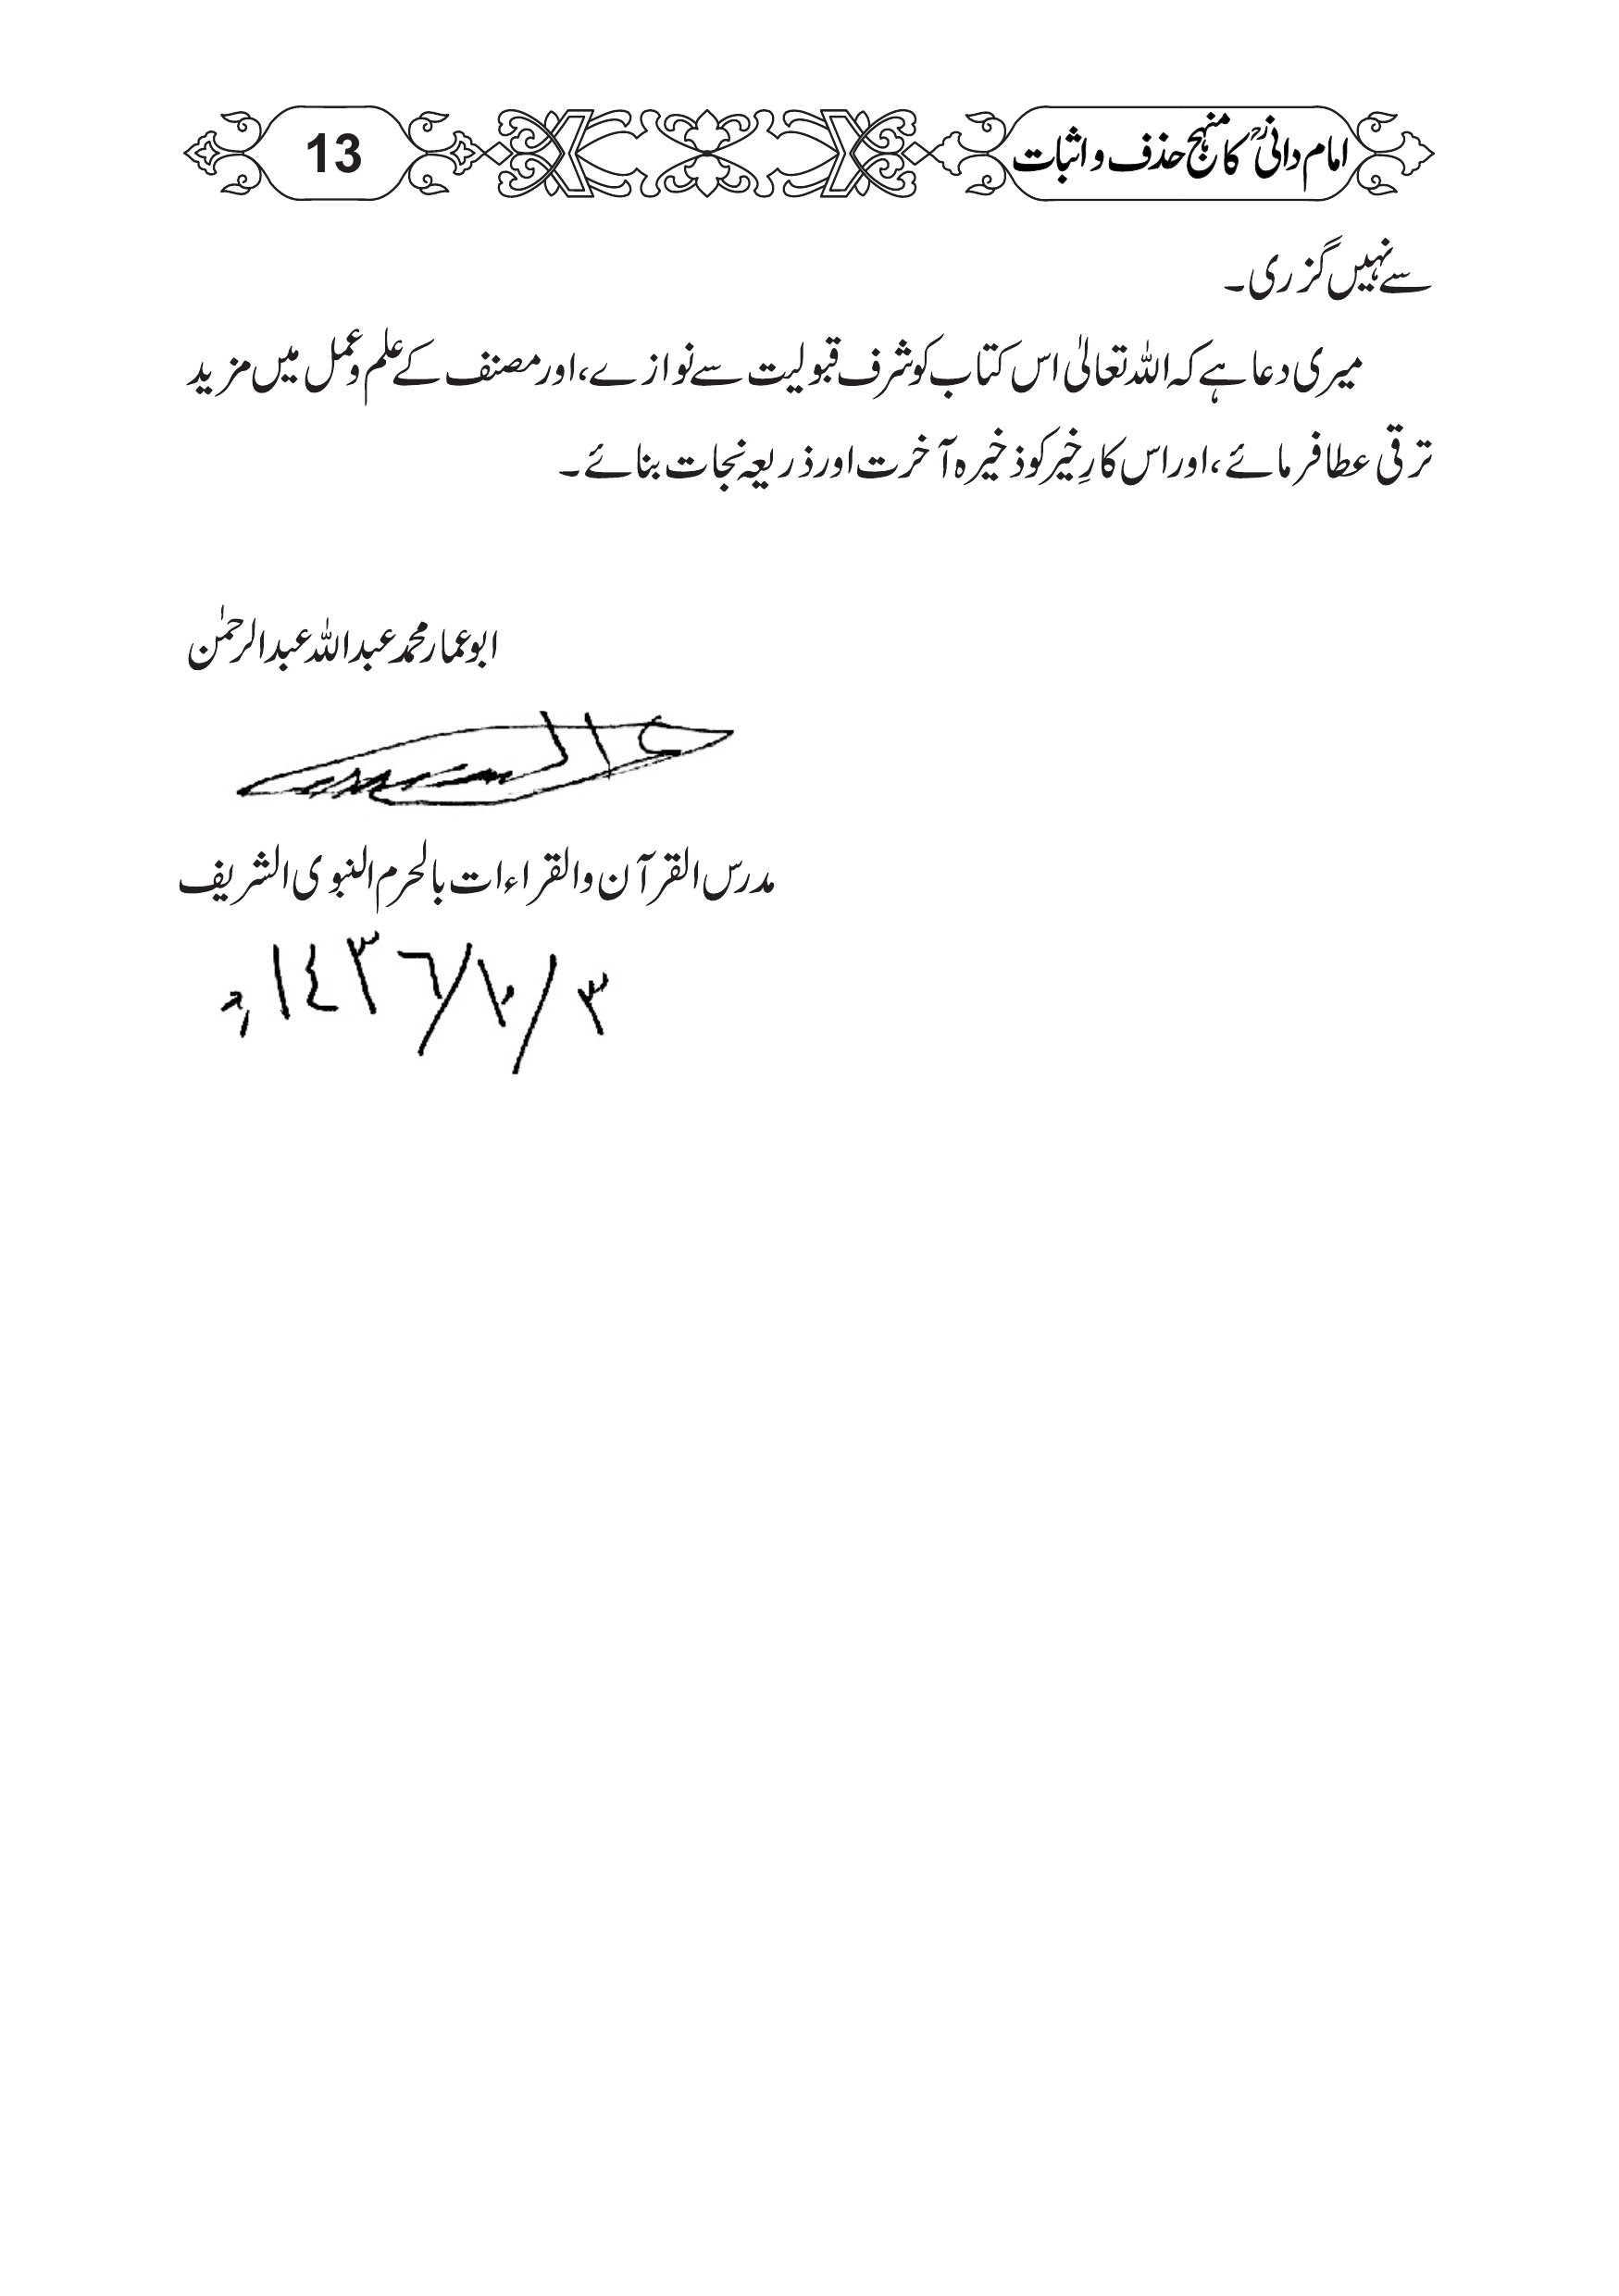 امام دانیؒ کا منہج حذف و اثبات
13
سے نہیں گزری۔
میری دعا ہے کہ اللہ تعالیٰ اس کتاب کو شرف قبولیت سے نوازے، اور مصنف کے علم و عمل میں مزید
ترقی عطا فرمائے، اور اس کارِ خیر کو ذخیرہ آخرت اور ذریعہ نجات بنائے۔
ابو عمار محمد عبد اللہ عبد الرحمٰن
مدرس القرآن والقراءات بالحرم النبوی الشریف